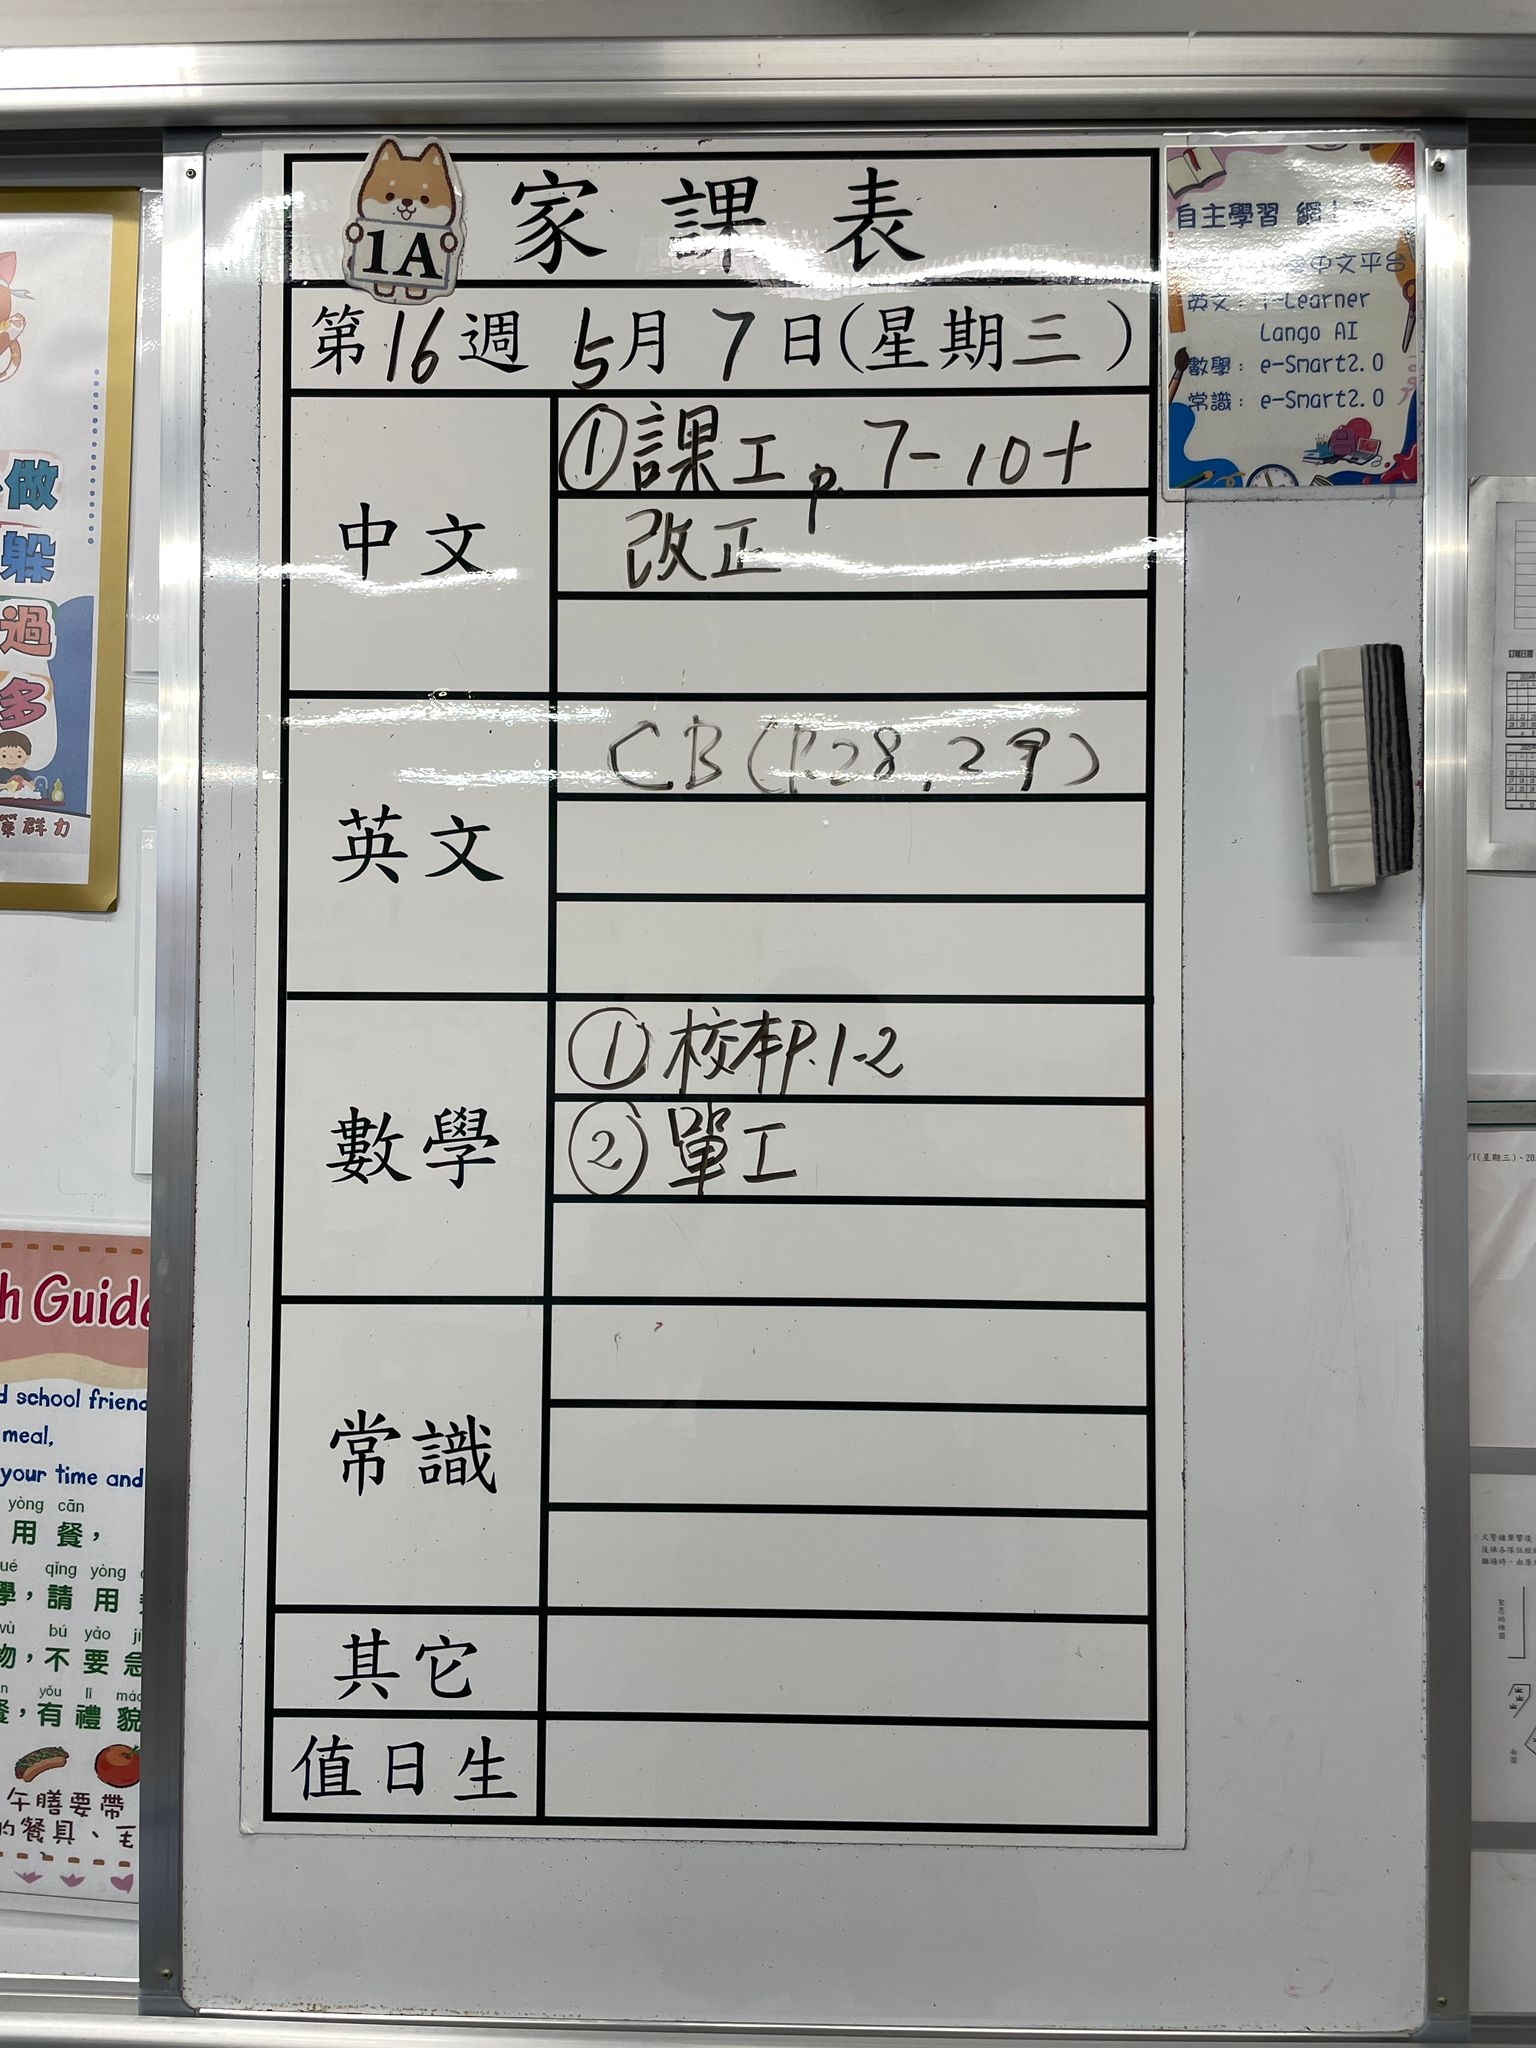 家課表
1A
第16週 5月7日(星期三)
中文
①課工 p. 7-10+
改正
英文
CB(P.28, 29)
數學
①校本P.1-2
②單工
常識
其它
值日生
自主學習 網上
中文平台
英文： i-Learner
Lango AI
數學： e-Smart2.0
常識： e-Smart2.0
做
躲
過
多
群力
h Guide
school friend
meal,
your time and
yòng cān
用餐，
qǐng yòng
學，請用
wù bú yào jí
物，不要急
yǒu lǐ mào
餐，有禮貌
午膳要帶
的餐具、毛
/1(星期三)、20
火警鐘聲響後